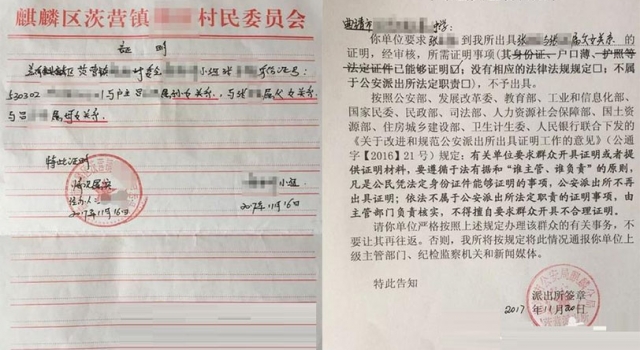 麒麟区茨营镇 村民委员会
证明
兹有 区茨营镇 村委会 小组张 身份证号:
530302 与户主吕 属 女关系,与张 属父女关系,
与吕 属 女关系。
特此证明
情况属实
小组
2017年11月16日
2017年11月16日
曲靖市 中学:
你单位要求张 到我所出具张 与张 属父女关系
的证明,经审核,所需证明事项(其身份证、户口薄、护照等
法定证件已能够证明□;没有相应的法律法规规定□;不属
于公安派出所法定职责□),不予出具。
按照公安部、发展改革委、教育部、工业和信息化部、
国家民委、民政部、司法部、人力资源社会保障部、国土资
源部、住房城乡建设部、卫生计生委、人民银行联合下发的
《关于改进和规范公安派出所出具证明工作的意见》(公通
字【2016】21号)规定:有关单位要求群众开具证明或者提
供证明材料,要遵循于法有据和“谁主管、谁负责”的原则,
凡是公民凭法定身份证件能够证明的事项,公安派出所不再
出具证明;依法不属于公安派出所法定职责的证明事项,由
主管部门负责核实,不得擅自要求群众开具不合理证明。
请你单位严格按照上述规定办理该群众的有关事务,不
要让其再往返。否则,我所将按规定将此情况通报你单位上
级主管部门、纪检监察机关和新闻媒体。
特此告知
派出所签章
2017年11月20日